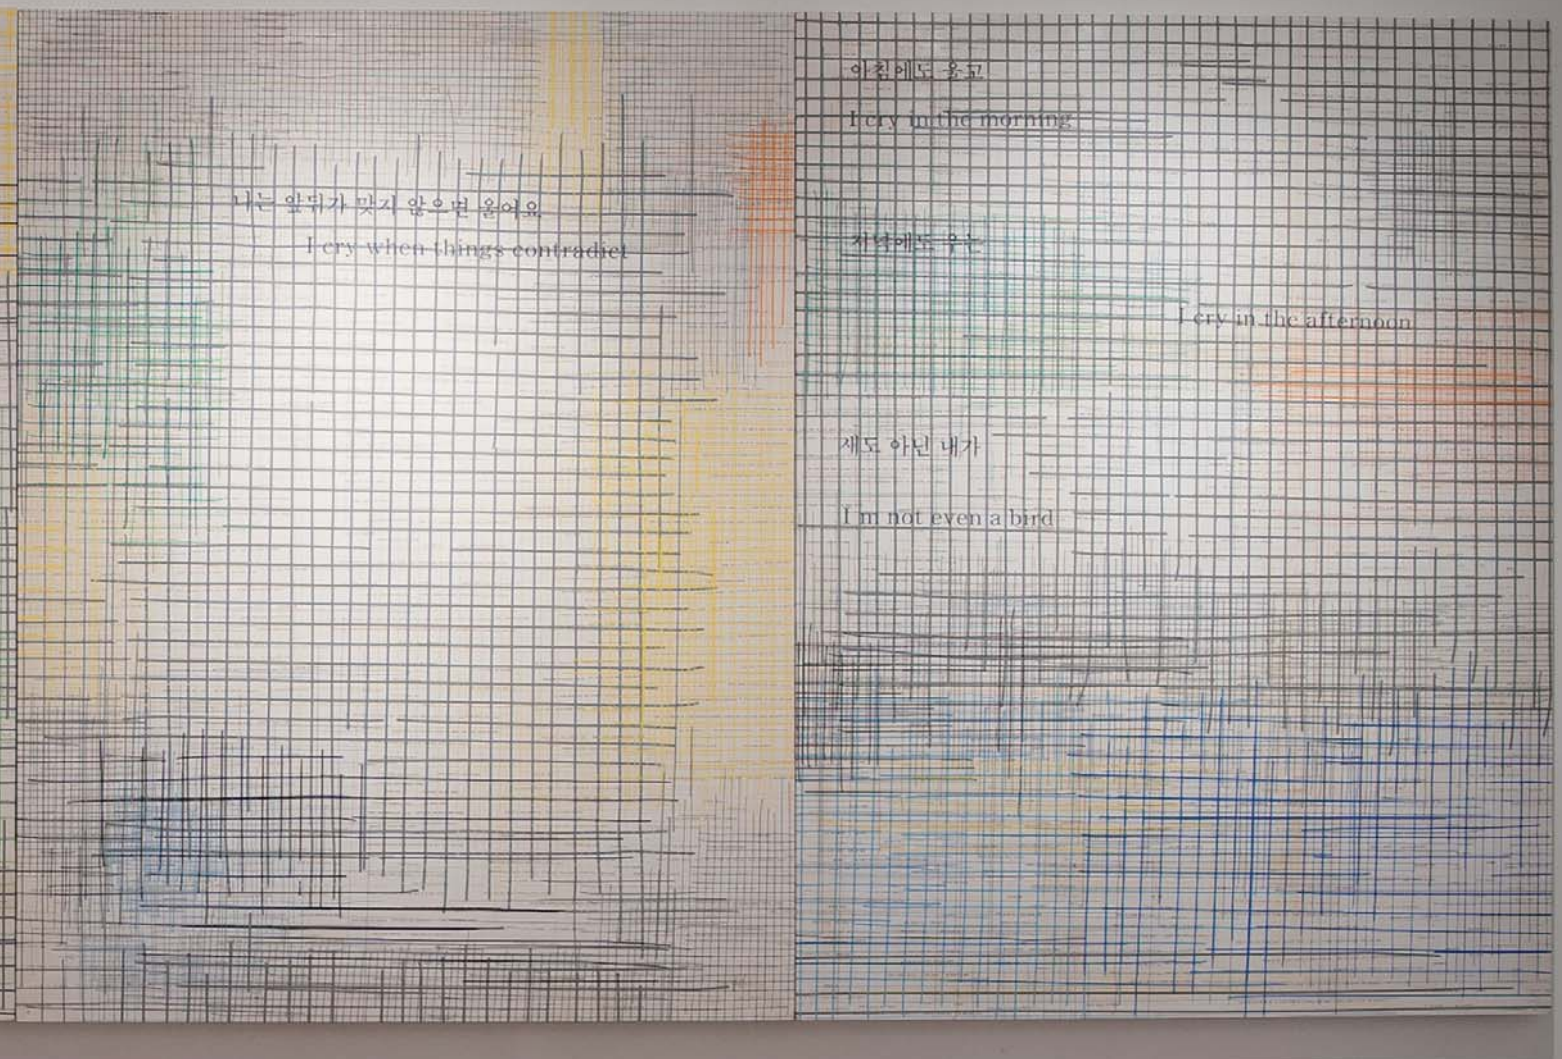 나는 앞뒤가 맞지 않으면 울어요
I cry when things contradict
아침에도 울고
I cry in the morning
저녁에도 우는
I cry in the afternoon
새도 아닌 내가
I'm not even a bird